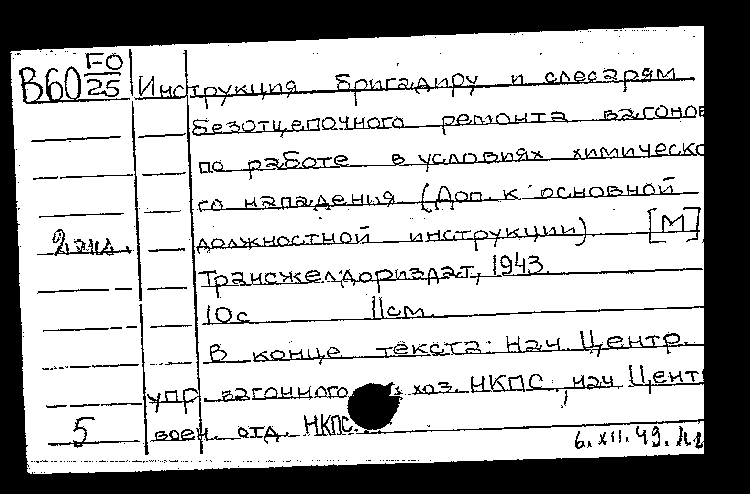 В60 FO/25 Инструкция бригадиру и слесарям
безотцепочного ремонта вагонов
по работе в условиях химическо
го нападения (Доп. к основной
2 экз. должностной инструкции) [М],
Трансжелдориздат, 1943.
10с 11см.
В конце текста: Нач. Центр.
упр. вагонного хоз. НКПС, нач Цент
5 воен. отд. НКПС...
6.XII.49.